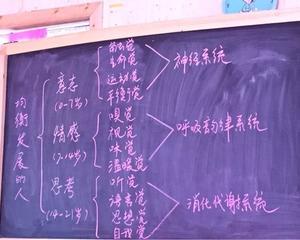 均衡发展的人
意志
(0-7岁)
触觉
生命觉
运动觉
平衡觉
神经系统
情感
(7-14岁)
嗅觉
视觉
味觉
温暖觉
呼吸韵律系统
思考
(14-21岁)
听觉
语言觉
思想觉
自我觉
消化代谢系统